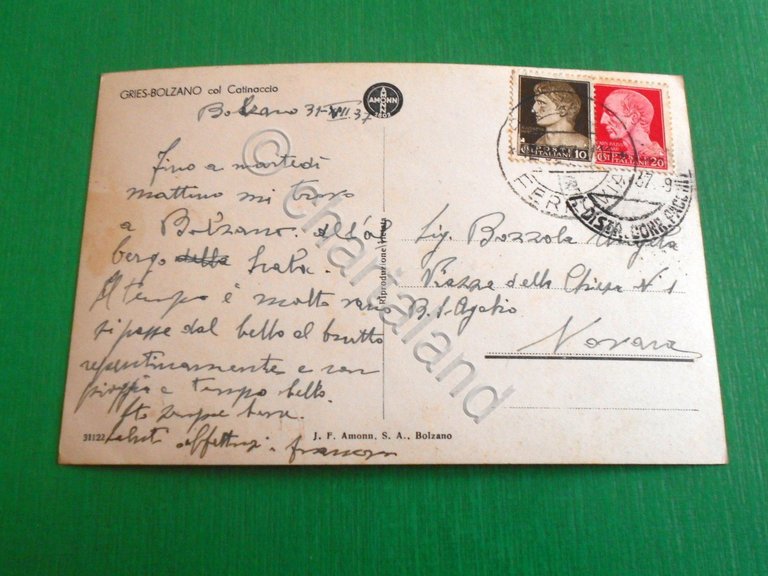 GRIES-BOLZANO col Catinaccio
AMONN
1802
Bolzano 31 VII 37
Fino a martedì
mattino mi trovo
a Bolzano. All'al
bergo della Scala.
Il tempo è molto vario
si passa dal bello al brutto
repentinamente e con
pioggia e tempo bello.
Sto sempre bene.
saluti affettuosi
31122
J. F. Amonn. S. A., Bolzano
Riproduzione vietata
POSTE
ITALIANE 10
POSTE
ITALIANE 20
DISTR. CORR. PACCHI
Sig. Bozzola Angela
Piazza della Chiesa N. 1
Novara
© chartaland